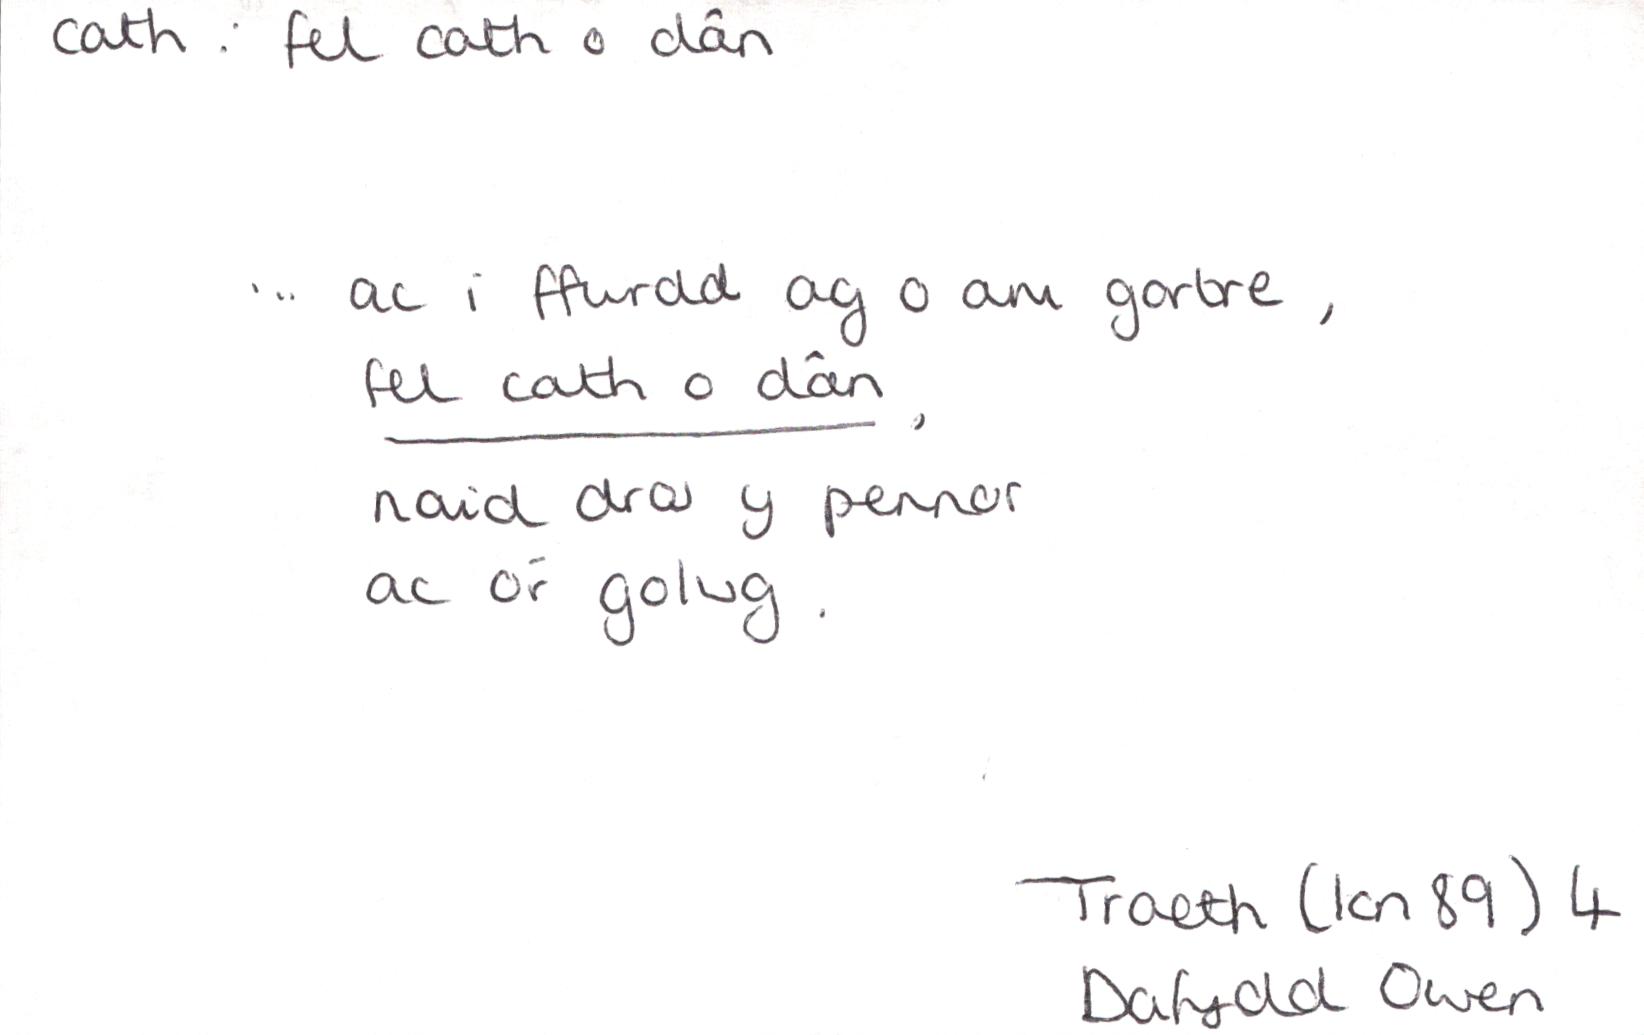 cath : fel cath o dân
... ac i ffwrdd ag o am gartre,
fel cath o dân,
naid dros y pennor
ac o'r golwg.
Traeth (Ion 89) 4
Dafydd Owen